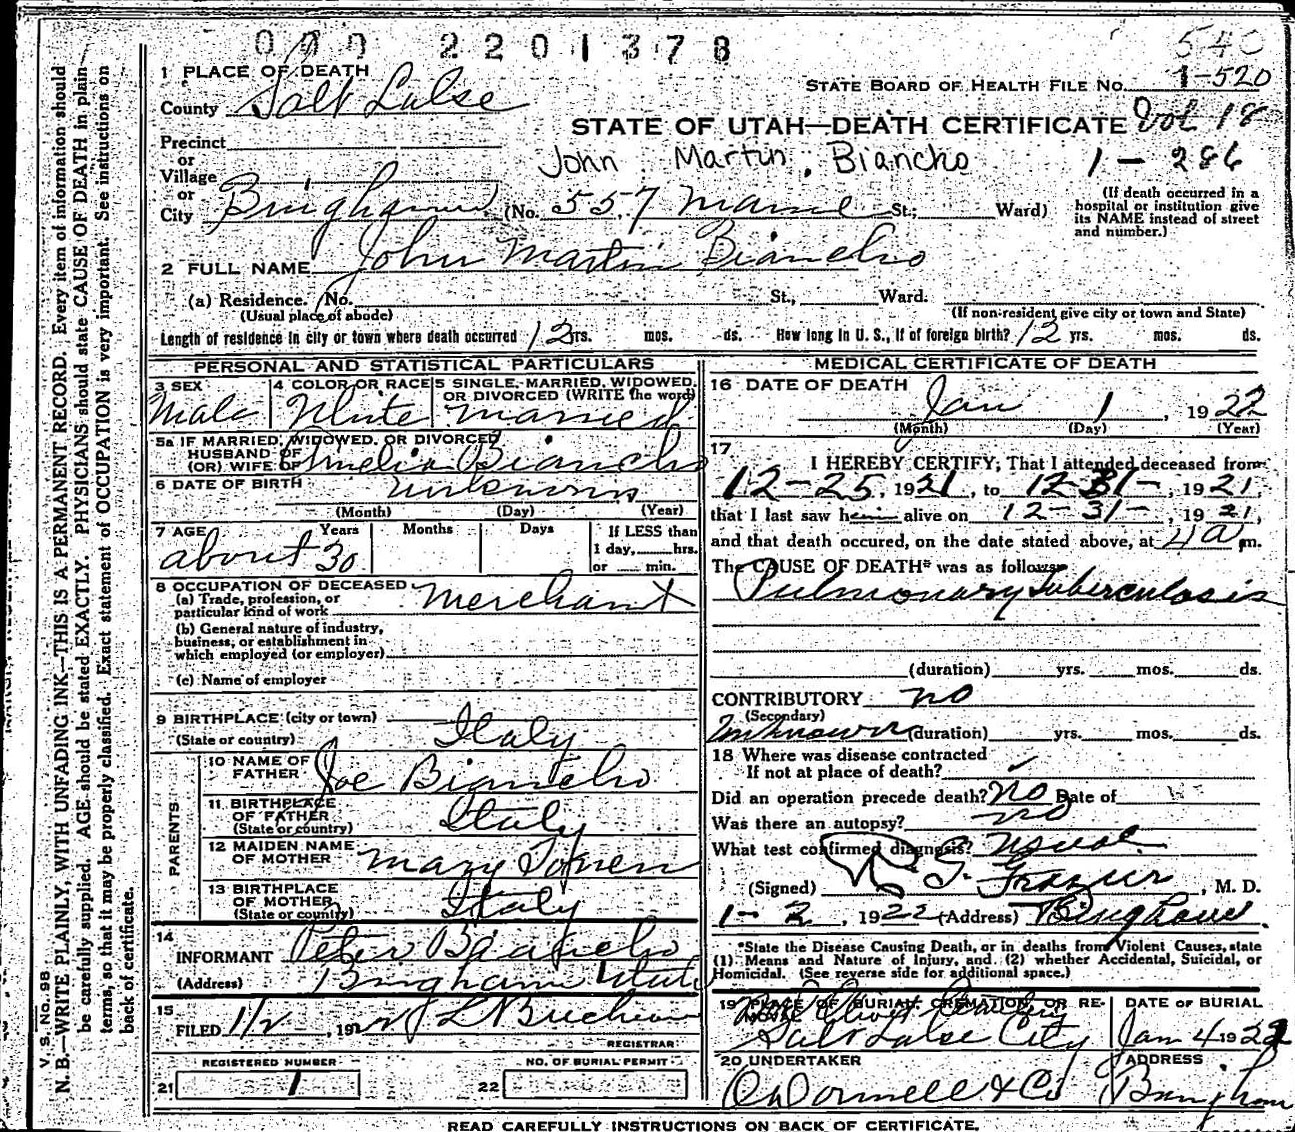 000 2201378
540
1 PLACE OF DEATH
STATE BOARD OF HEALTH FILE No. 1-520
County Salt Lake
STATE OF UTAH—DEATH CERTIFICATE Vol 18
Precinct
John Martin Biancho 1-286
or
Village
or
City Bingham (No. 557 Maine St; Ward)
(If death occurred in a hospital or institution give its NAME instead of street and number.)
2 FULL NAME John Martin Biancho
(a) Residence. No. St., Ward.
(Usual place of abode) (If non-resident give city or town and State)
Length of residence in city or town where death occurred 12 yrs. mos. ds. How long in U. S., if of foreign birth? 12 yrs. mos. ds.
PERSONAL AND STATISTICAL PARTICULARS
3 SEX Male
4 COLOR OR RACE White
5 SINGLE, MARRIED, WIDOWED, OR DIVORCED (WRITE the word) Married
5a IF MARRIED, WIDOWED, OR DIVORCED
HUSBAND OF
(OR) WIFE OF Amelia Biancho
6 DATE OF BIRTH unknown
(Month) (Day) (Year)
7 AGE about 30 Years Months Days
If LESS than 1 day, hrs. or min.
8 OCCUPATION OF DECEASED
(a) Trade, profession, or particular kind of work Merchant
(b) General nature of industry, business, or establishment in which employed (or employer)
(c) Name of employer
9 BIRTHPLACE (city or town)
(State or country) Italy
PARENTS
10 NAME OF FATHER Joe Biancho
11 BIRTHPLACE OF FATHER (State or country) Italy
12 MAIDEN NAME OF MOTHER Mary
13 BIRTHPLACE OF MOTHER (State or country) Italy
14
INFORMANT Peter Biancho
(Address) Bingham Utah
15
FILED 1/2, 1922
REGISTRAR
REGISTERED NUMBER
21 1
NO. OF BURIAL PERMIT
22
MEDICAL CERTIFICATE OF DEATH
16 DATE OF DEATH Jan 1, 1922
(Month) (Day) (Year)
17
I HEREBY CERTIFY, That I attended deceased from
12-25, 1921, to 12-31-, 1921
that I last saw him alive on 12-31-, 1921,
and that death occured, on the date stated above, at 4 a m.
The CAUSE OF DEATH* was as follows:
Pulmonary tuberculosis
(duration) yrs. mos. ds.
CONTRIBUTORY no
(Secondary)
unknown (duration) yrs. mos. ds.
18 Where was disease contracted
If not at place of death?
Did an operation precede death? no Date of
Was there an autopsy? no
What test confirmed diagnosis? usual
(Signed) R G Frazier, M. D.
1-2, 1922 (Address) Bingham
*State the Disease Causing Death, or in deaths from Violent Causes, state
(1) Means and Nature of Injury, and (2) whether Accidental, Suicidal, or
Homicidal. (See reverse side for additional space.)
19 PLACE OF BURIAL, CREMATION, OR REMOVAL
Mt Olivet Cemetery
Salt Lake City
DATE OF BURIAL
Jan 4 1922
20 UNDERTAKER
O'Donnell & Co
ADDRESS
Bingham
READ CAREFULLY INSTRUCTIONS ON BACK OF CERTIFICATE.
V. S. No. 98
N. B.—WRITE PLAINLY, WITH UNFADING INK—THIS IS A PERMANENT RECORD. Every item of information should
be carefully supplied. AGE should be stated EXACTLY. PHYSICIANS should state CAUSE OF DEATH in plain
terms, so that it may be properly classified. Exact statement of OCCUPATION is very important. See instructions on
back of certificate.